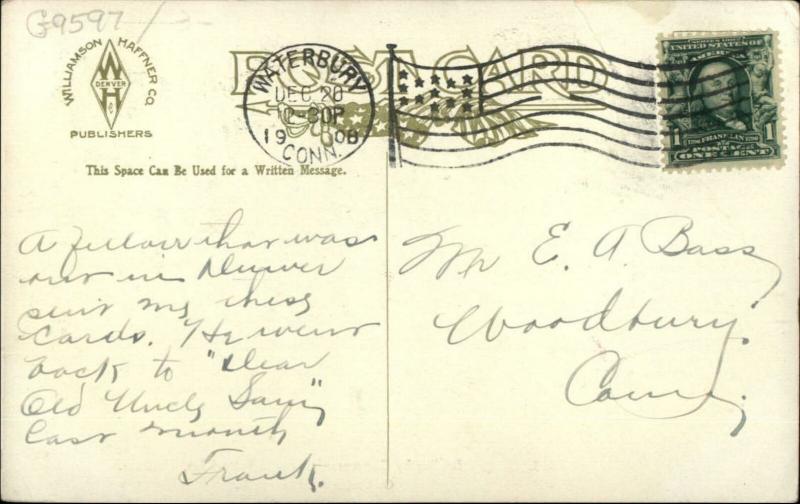 G9597
WILLIAMSON HAFFNER CO.
W
DENVER
H
PUBLISHERS
POST CARD
WATERBURY
DEC 20
12-30P
1908
CONN.
SERIES 1902
UNITED STATES OF AMERICA
1 FRANKLIN 1
POSTAGE
ONE CENT
This Space Can Be Used for a Written Message.
A fellow that was
out in Denver
sent me these
cards. He went
back to "Dear
Old Uncle Sam"
last month
Frank.
Mr E. A. Bass,
Woodbury.
Conn.